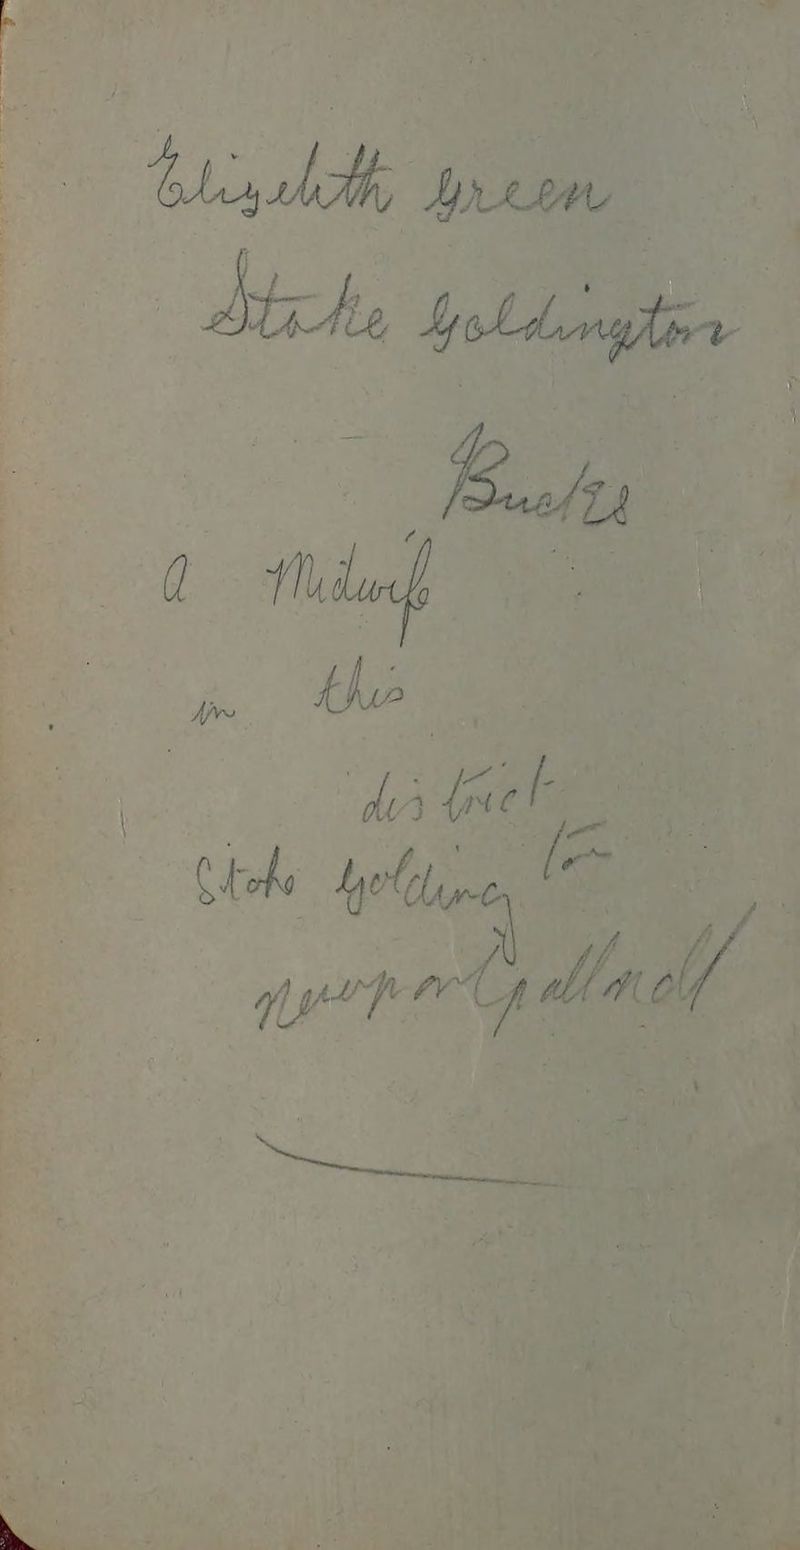 Elizebeth Green
Stoke Goldington
Bucks
A Midwife
in this
district
Stoke Goldington
Newport Pallnell